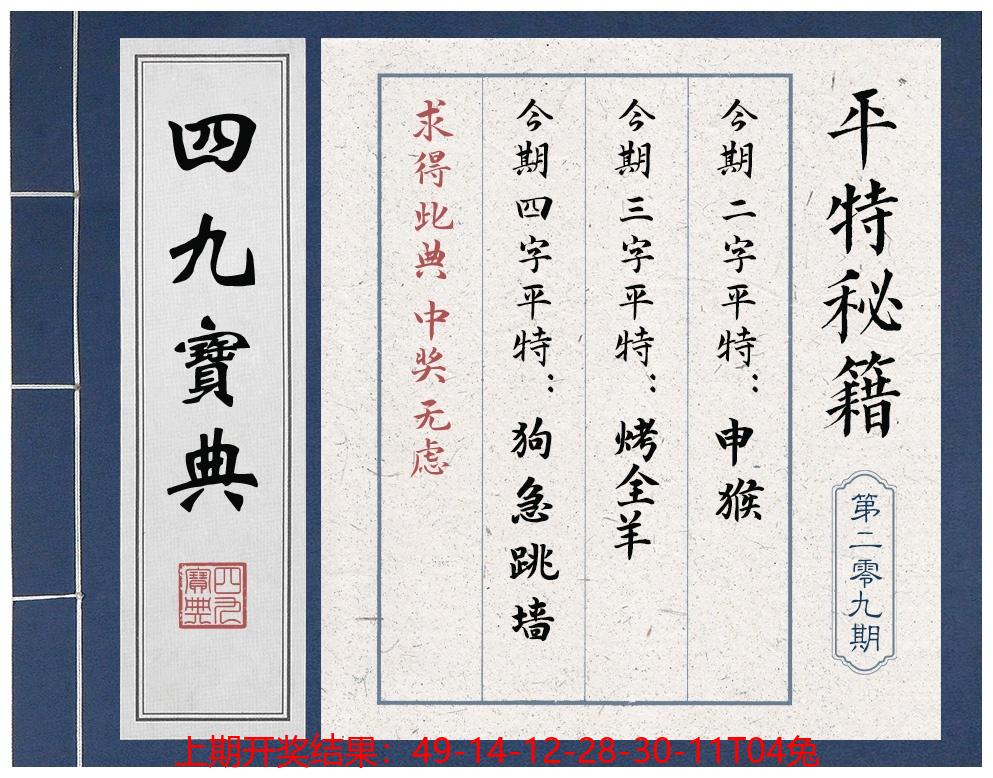 平特秘籍
第二零九期
今期二字平特：申猴
今期三字平特：烤全羊
今期四字平特：狗急跳墙
求得此典 中奖无虑
四九寶典
四九寶典
上期开奖结果：49-14-12-28-30-11T04兔